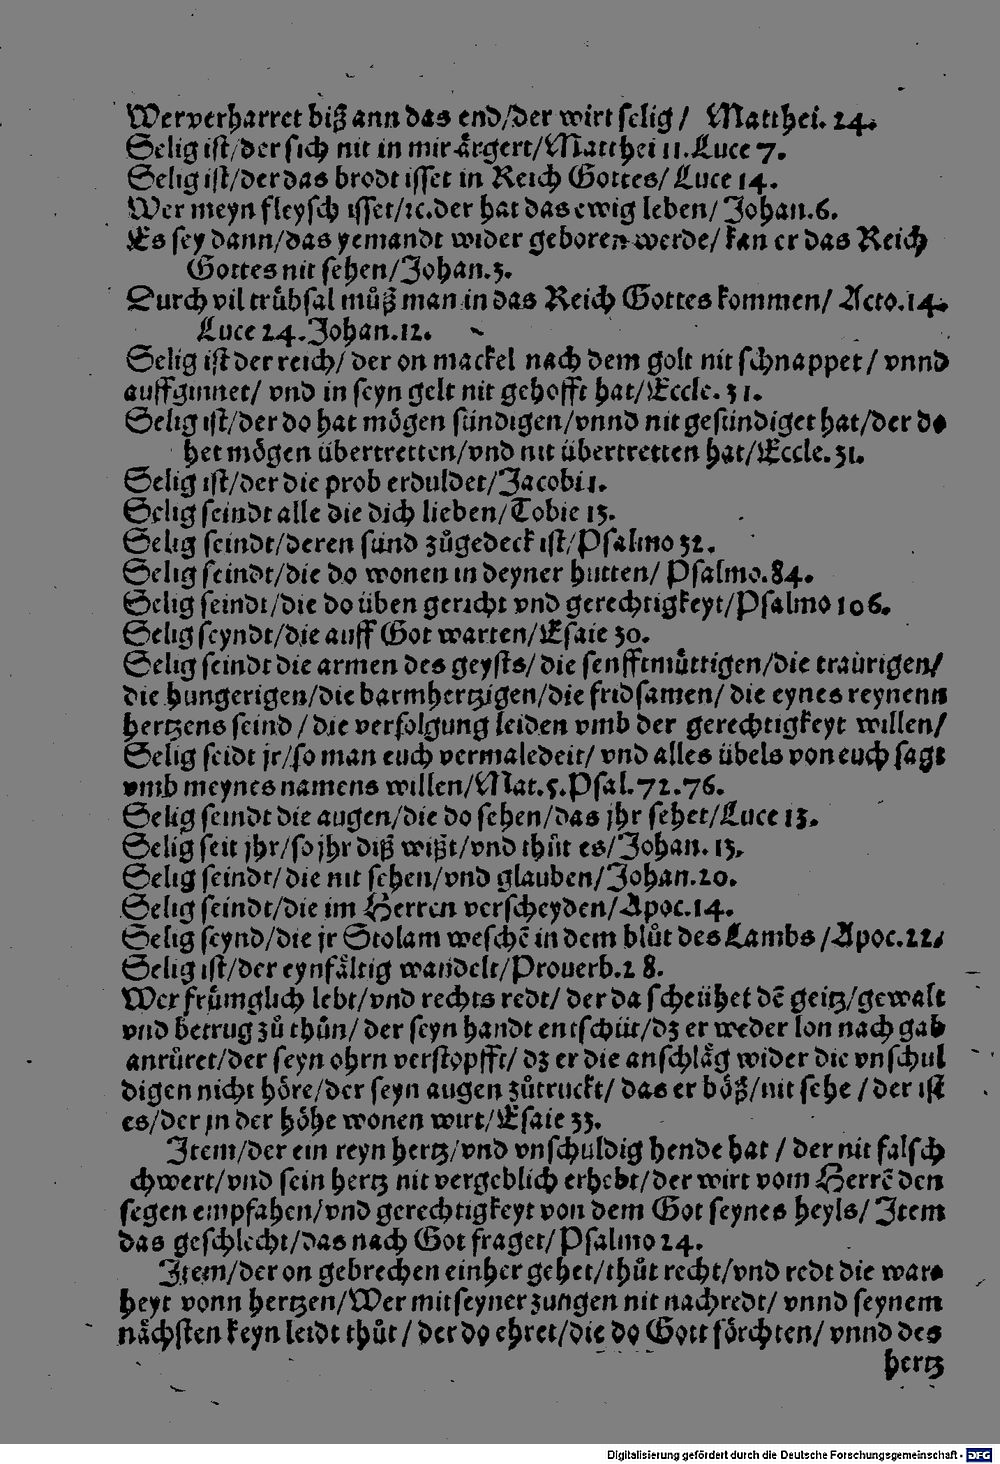 Wer verharret biß ann das end/der wirt selig / Matthei. 24.
Selig ist/der sich nit in mir ärgert/Matthei 11. Luce 7.
Selig ist/der das brodt isset in Reich Gottes/ Luce 14.
Wer meyn fleysch isset/ꝛc.der hat das ewig leben/ Johan.6.
Es sey dann/das yemandt wider geboren werde/ kan er das Reich
Gottes nit sehen/Johan.3.
Durch vil trübsal můß man in das Reich Gottes kommen/ Acto.14.
Luce 24. Johan.12.
Selig ist der reich/ der on mackel nach dem golt nit schnappet / vnnd
auffginnet/ vnd in seyn gelt nit gehofft hat/Eccle. 31.
Selig ist/der do hat mögen sündigen/vnnd nit gesündiget hat/der do
het mögen übertretten/vnd nit übertretten hat/Eccle. 31.
Selig ist/der die prob erduldet/Jacobi 1.
Selig seindt alle die dich lieben/Tobie 13.
Selig seindt/deren sünd zůgedeck ist/Psalmo 32.
Selig seindt/die do wonen in deyner hütten/ Psalmo.84.
Selig seindt/die do üben gericht vnd gerechtigkeyt/Psalmo 106.
Selig seyndt/die auff Got warten/Esaie 30.
Selig seindt die armen des geysts/ die senfftmüttigen/die traürigen/
die hungerigen/die barmhertzigen/die fridsamen/ die eynes reynenn
hertzens seind / die verfolgung leiden vmb der gerechtigkeyt willen/
Selig seidt jr/so man euch vermaledeit/ vnd alles übels von euch sagt
vmb meynes namens willen/Mat.5.Psal.72.76.
Selig seindt die augen/die do sehen/das jhr sehet/Luce 13.
Selig seit jhr/so jhr diß wißt/vnd thůt es/Johan. 13.
Selig seindt/die nit sehen/vnd glauben/Johan.20.
Selig seindt/die im Herren verscheyden/Apoc.14.
Selig seynd/die jr Stolam weschē in dem blůt des Lambs /Apoc.22.
Selig ist/der eynfältig wandelt/Prouerb.28.
Wer frümglich lebt/vnd rechts redt/ der da scheühet dē geitz/gewalt
vnd betrug zů thůn/ der seyn handt entschüt/dz er weder lon nach gab
anrüret/der seyn ohrn verstopfft/ dz er die anschläg wider die vnschul
digen nicht höre/der seyn augen zůtruckt/ das er böß/nit sehe / der ist
es/der in der höhe wonen wirt/Esaie 33.
Item/der ein reyn hertz/vnd vnschuldig hende hat / der nit falsch
chwert/vnd sein hertz nit vergeblich erhebt/der wirt vom Herrē den
segen empfahen/vnd gerechtigkeyt von dem Got seynes heyls/ Item
das geschlecht/das nach Got fraget/Psalmo 24.
Item/der on gebrechen einher gehet/thůt recht/vnd redt die war
heyt vonn hertzen/Wer mit seyner zungen nit nachredt/ vnnd seynem
nächsten keyn leidt thůt / der do ehret/die do Gott förchten/ vnnd des
hertz
Digitalisierung gefördert durch die Deutsche Forschungsgemeinschaft - DFG